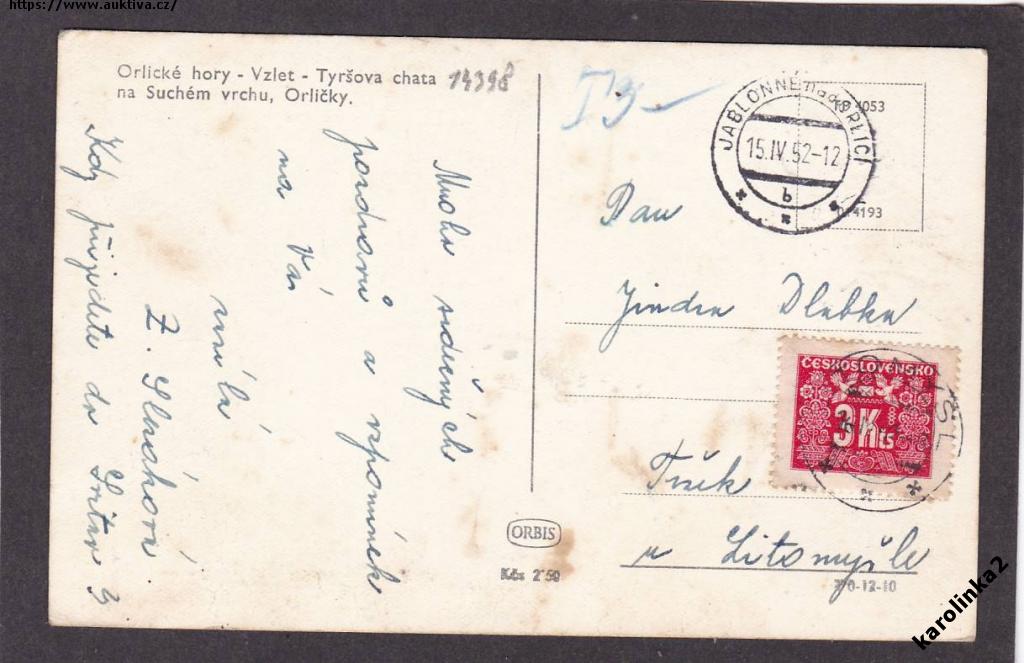 https://www.auktiva.cz/
Orlické hory - Vzlet - Tyršova chata
na Suchém vrchu, Orličky.
14398
Mnoho srdečných
pozdravů a vzpomínek
na Vás
milá
Z.
Kdy přijedete do
ORBIS
Kčs 2'50
T 3-
JABLONNÉ nad ORLICÍ
15.IV.52-12
b
4053
4193
Pan
Jindra Dlabka
ČESKOSLOVENSKO
3 Kčs
Tržek
u Litomyšle
270-12-10
karolinka2